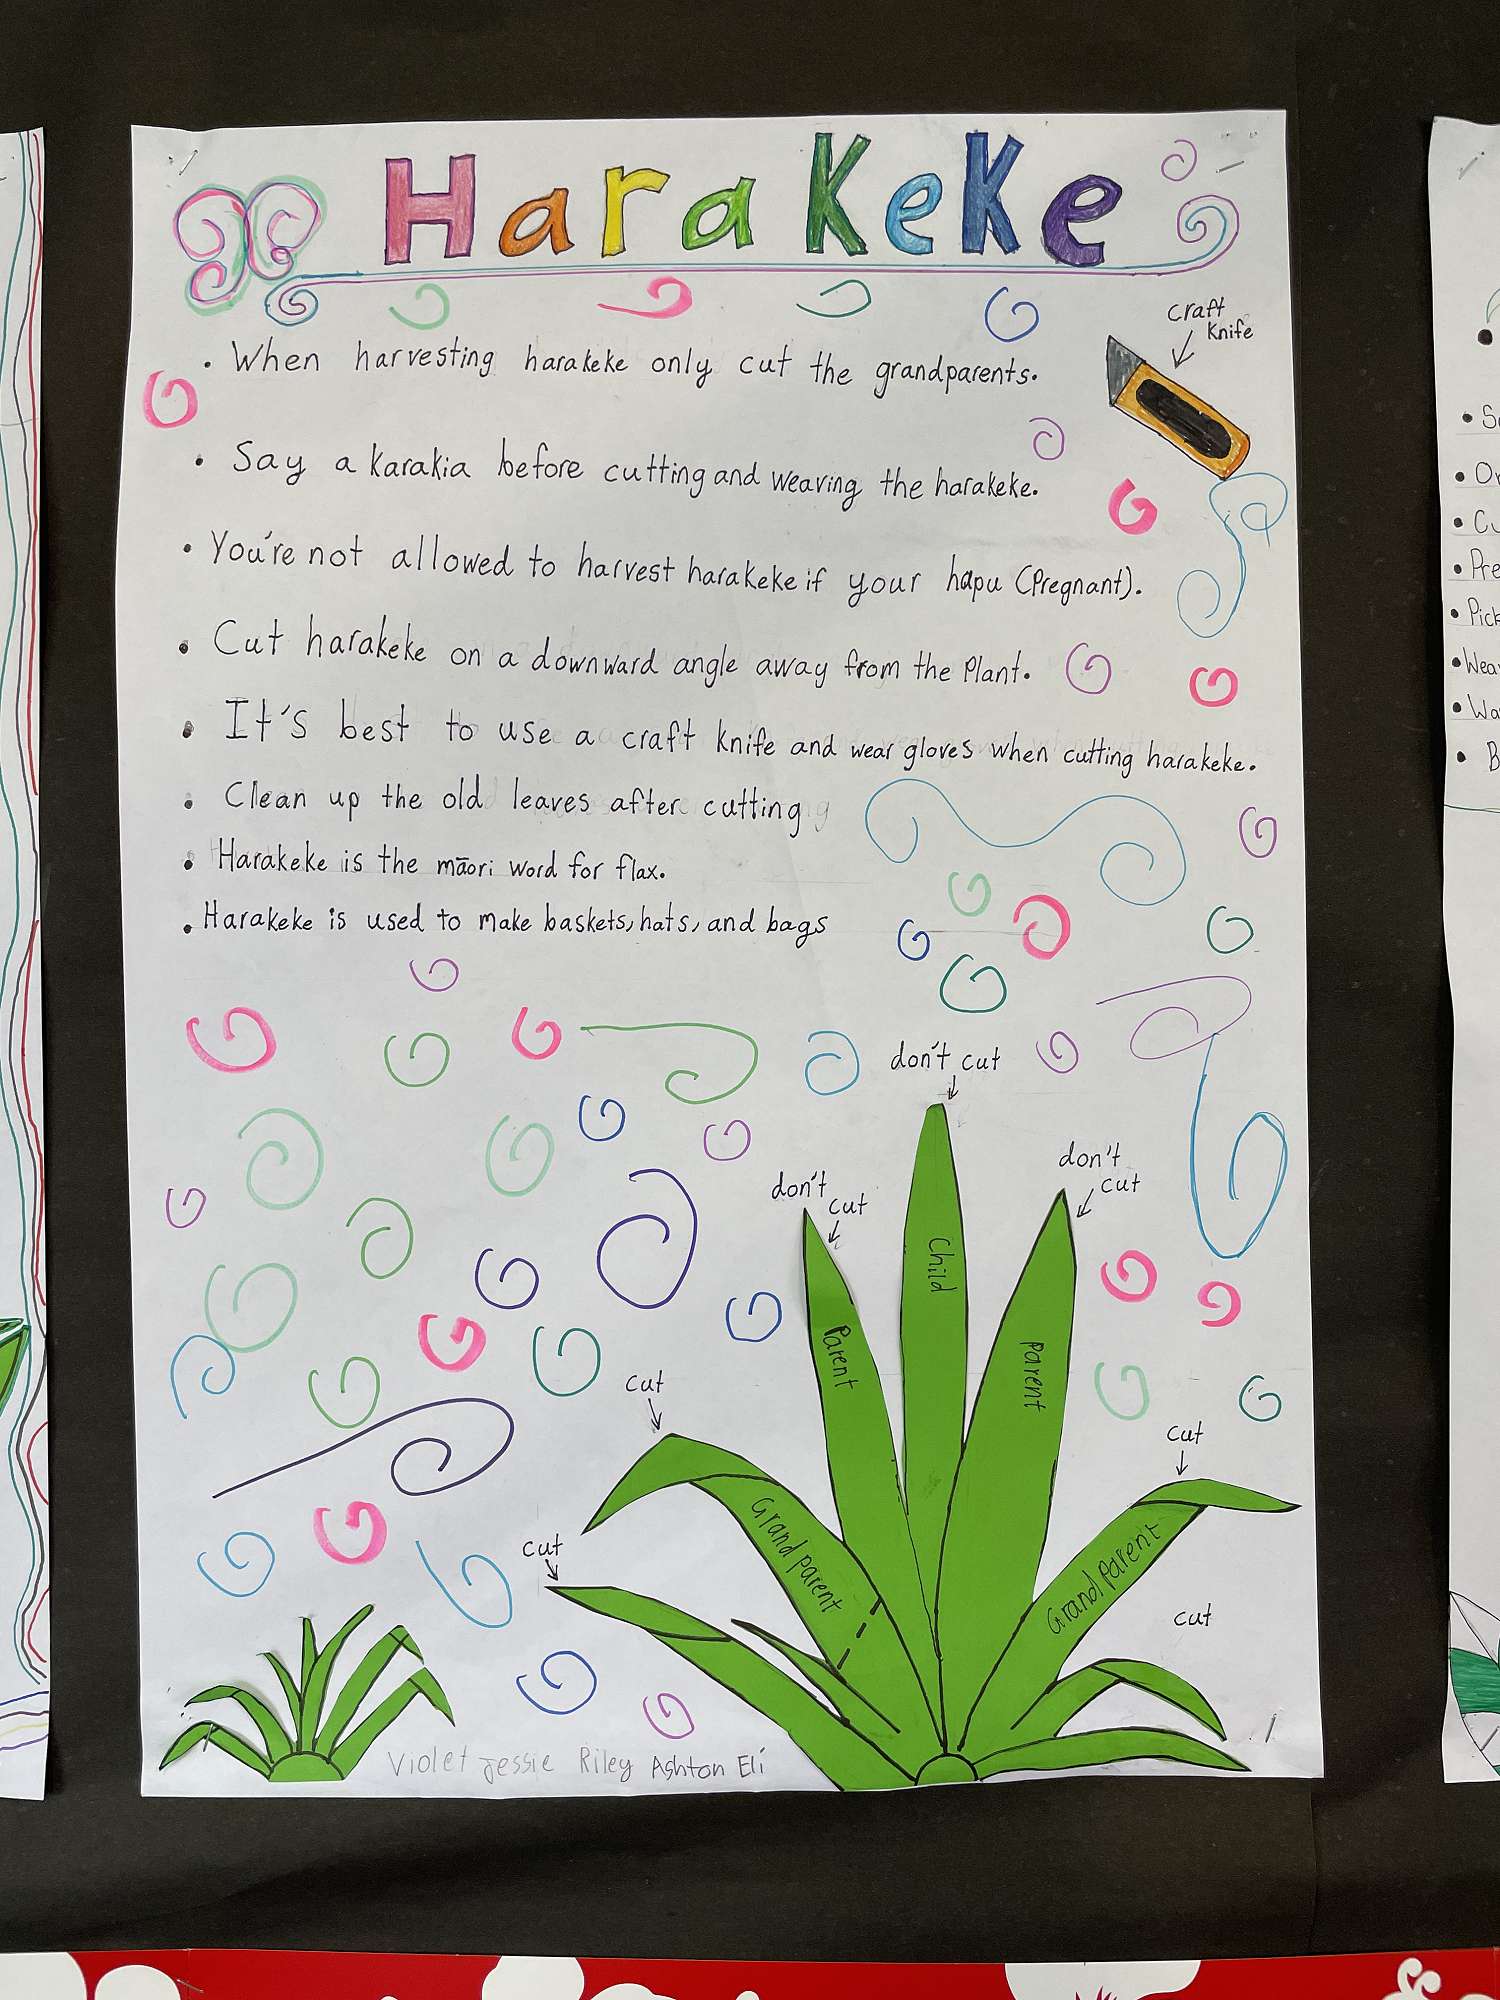 HaraKeKe
craft
Knife
• When harvesting harakeke only cut the grandparents.
• Say a karakia before cutting and weaving the harakeke.
• You're not allowed to harvest harakeke if your hapu (Pregnant).
• Cut harakeke on a downward angle away from the Plant.
• It's best to use a craft knife and wear gloves when cutting harakeke.
• Clean up the old leaves after cutting
• Harakeke is the māori word for flax.
• Harakeke is used to make baskets, hats, and bags
don't cut
don't
cut
don't
cut
Child
Parent
Parent
cut
cut
Grandparent
Grandparent
cut
cut
Violet Jessie Riley Ashton Eli
• Pick